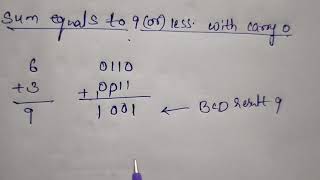 Sum equals to 9 (or) less. with carry 0
6 0110
+3 +0011
9 1001 ← BCD result 9